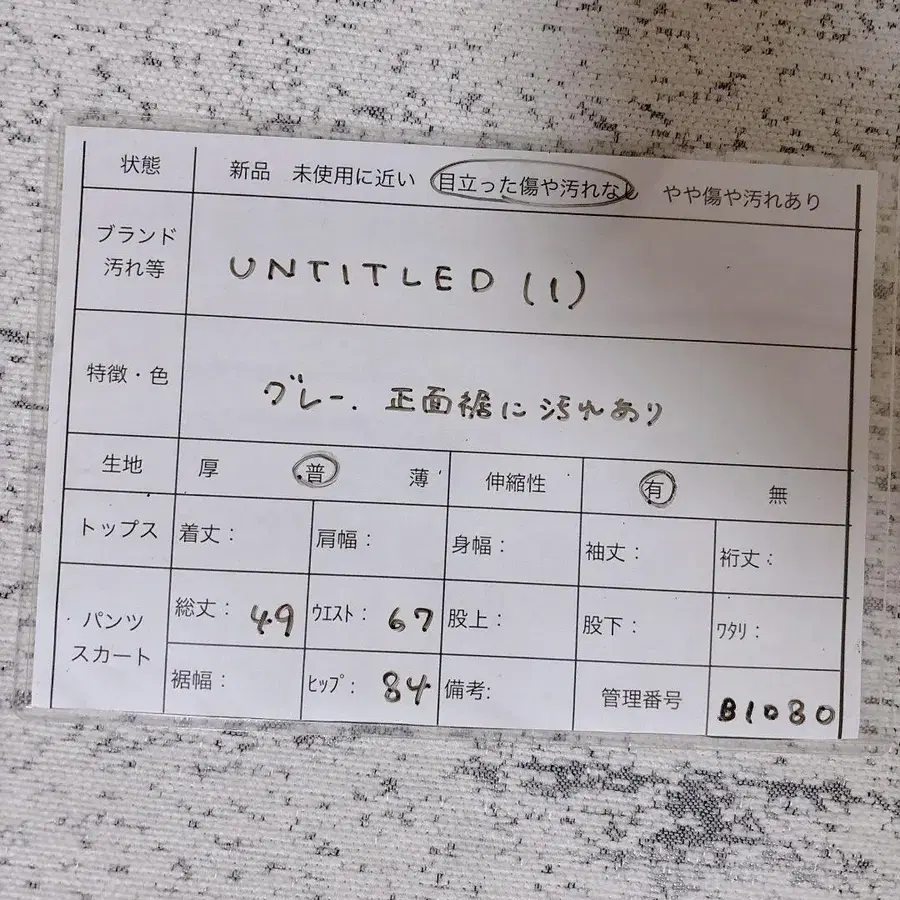 状態 新品 未使用に近い 目立った傷や汚れなし やや傷や汚れあり
ブランド
汚れ等 UNTITLED (1)
特徴・色 グレー. 正面裾に汚れあり
生地 厚 普 薄 伸縮性 有 無
トップス 着丈: 肩幅: 身幅: 袖丈: 裄丈:
パンツ
スカート
総丈: 49 ウエスト: 67 股上: 股下: ワタリ:
裾幅: ヒップ: 84 備考: 管理番号 B1080